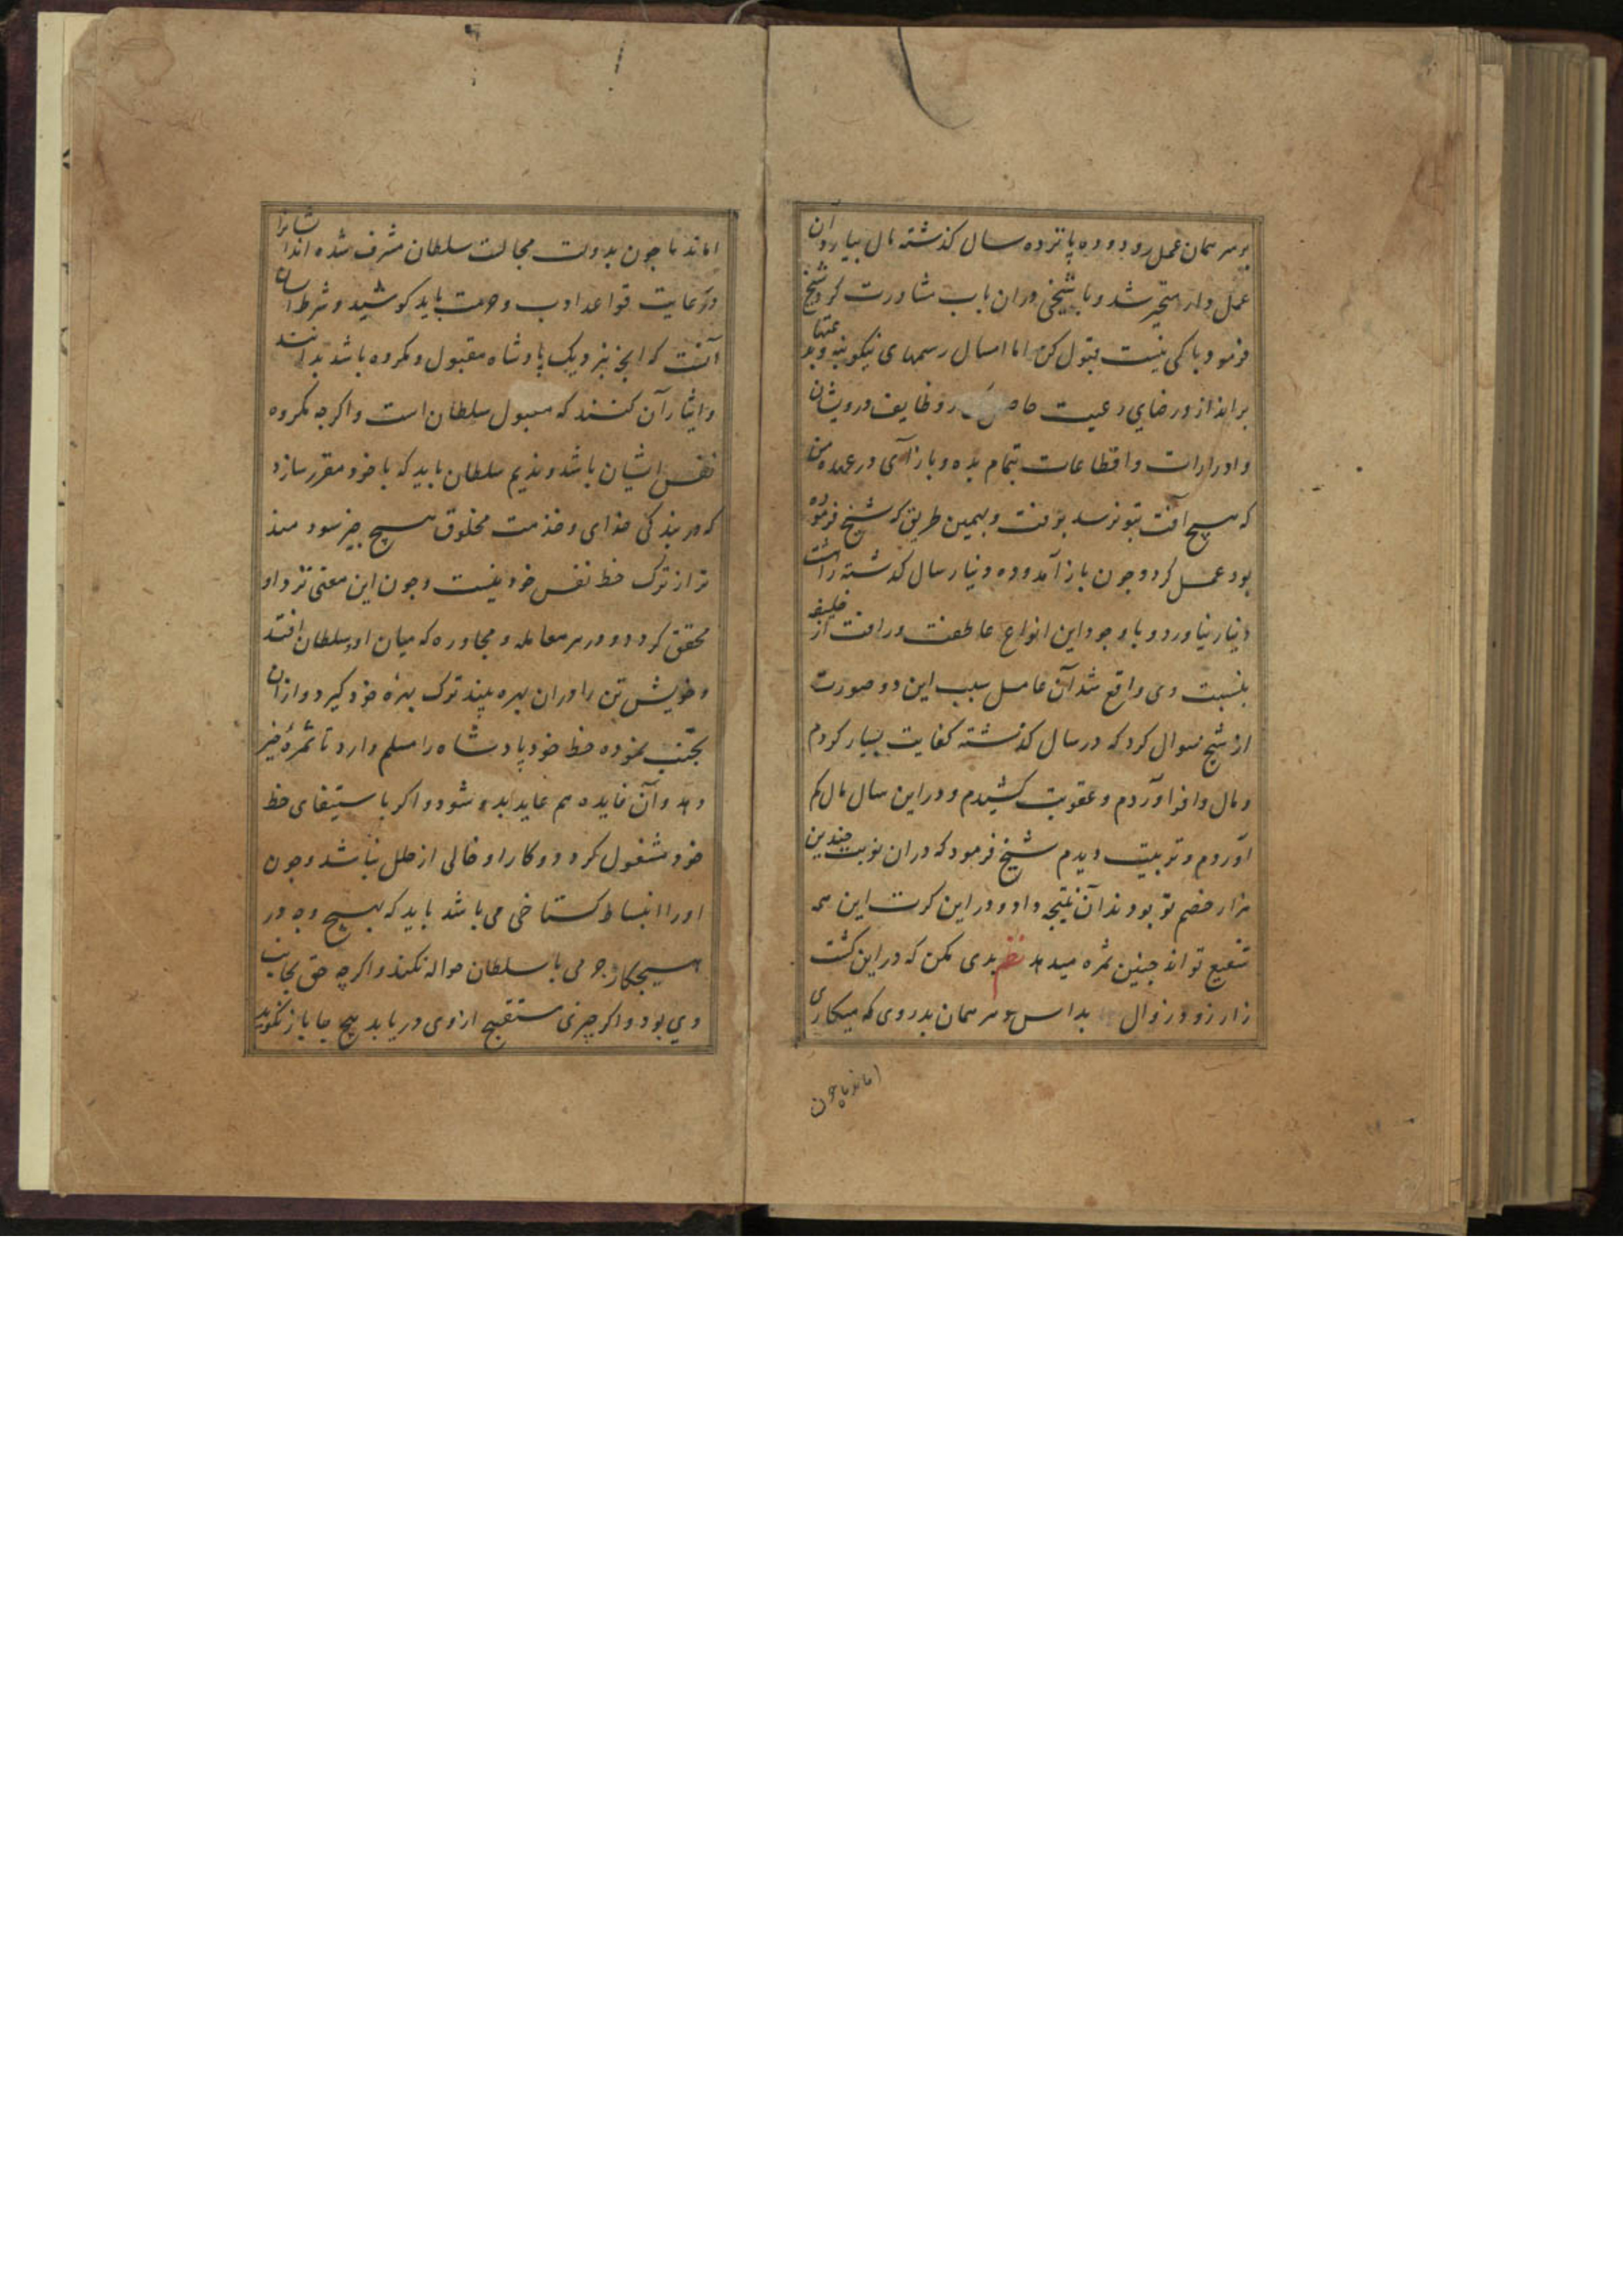 بر سر همان عمل رود و ده پانزده سال گذشته مال بیارد آن
عمل دار متحیر شد و با شیخی در ان باب مشاورت کرد شیخ
فرمود باکی نیست قبول کن اما امسال رسمهای نیکو بنه و بدعتها
برانداز و رضای رعیت حاصل و وظایف درویشان
و ادرارات و اقطاعات بتمام بده و باز آی در عهده من
که هیچ آفت بتو نرسد برفت و بهمین طریق که شیخ فرموده
بود عمل کرد و چون باز آمد و ده دینار سال گذشته را هشت
دینار نیاورد و با وجود این انواع عاطفت و رافت از خلیفه
بنسبت وی واقع شد آن عامل سبب این دو صورت
از شیخ سوال کرد که در سال گذشته کفایت بسیار کردم
و مال وافر آوردم و عقوبت کشیدم و در این سال مال کم
آوردم و تربیت دیدم شیخ فرمود که در ان نوبت چندین
هزار خصم تو بودند آن نتیجه داد و در این کرت این همه
شفیع تو اند چنین ثمره میدهد نظم بدی مکن که در این کشت
زار زود زوال بداس دهر همان بدروی که میکاری
اما ندما چون
اما ندما چون بدولت مجالست سلطان مشرف شده اند ایشانرا
در رعایت قواعد ادب و حرمت باید کوشید و شرط ایشان
آنست که آنچه بنزدیک پادشاه مقبول و مکروه باشد بدانند
و ایثار آن کنند که مقبول سلطان است و اگرچه مکروه
نفس ایشان باشد و ندیم سلطان باید که با خود مقرر سازد
که در بندگی خدای و خدمت مخلوق هیچ چیز سودمند
تر از ترک حظ نفس خود نیست و چون این معنی نزد او
محقق گردد و در هر معامله و محاوره که میان او و سلطان افتد
و خویش تن را در ان بهره بیند ترک بهره خود گیرد و از ان
تجنب نموده حظ خود پادشاه را مسلم دارد تا ثمره خیر
دهد و آن فایده هم عاید بدو شود و اگر باستیفای حظ
خود مشغول گردد و کار او خالی از خلل نباشد و چون
او را انبساط گستاخی می باشد باید که بهیچ وجه در
هیچکار جرمی با سلطان حواله نکند و اگرچه حق بجانب
وی بود و اگر چیزی مستقبح از وی در یابد هیچ جا باز نگوید